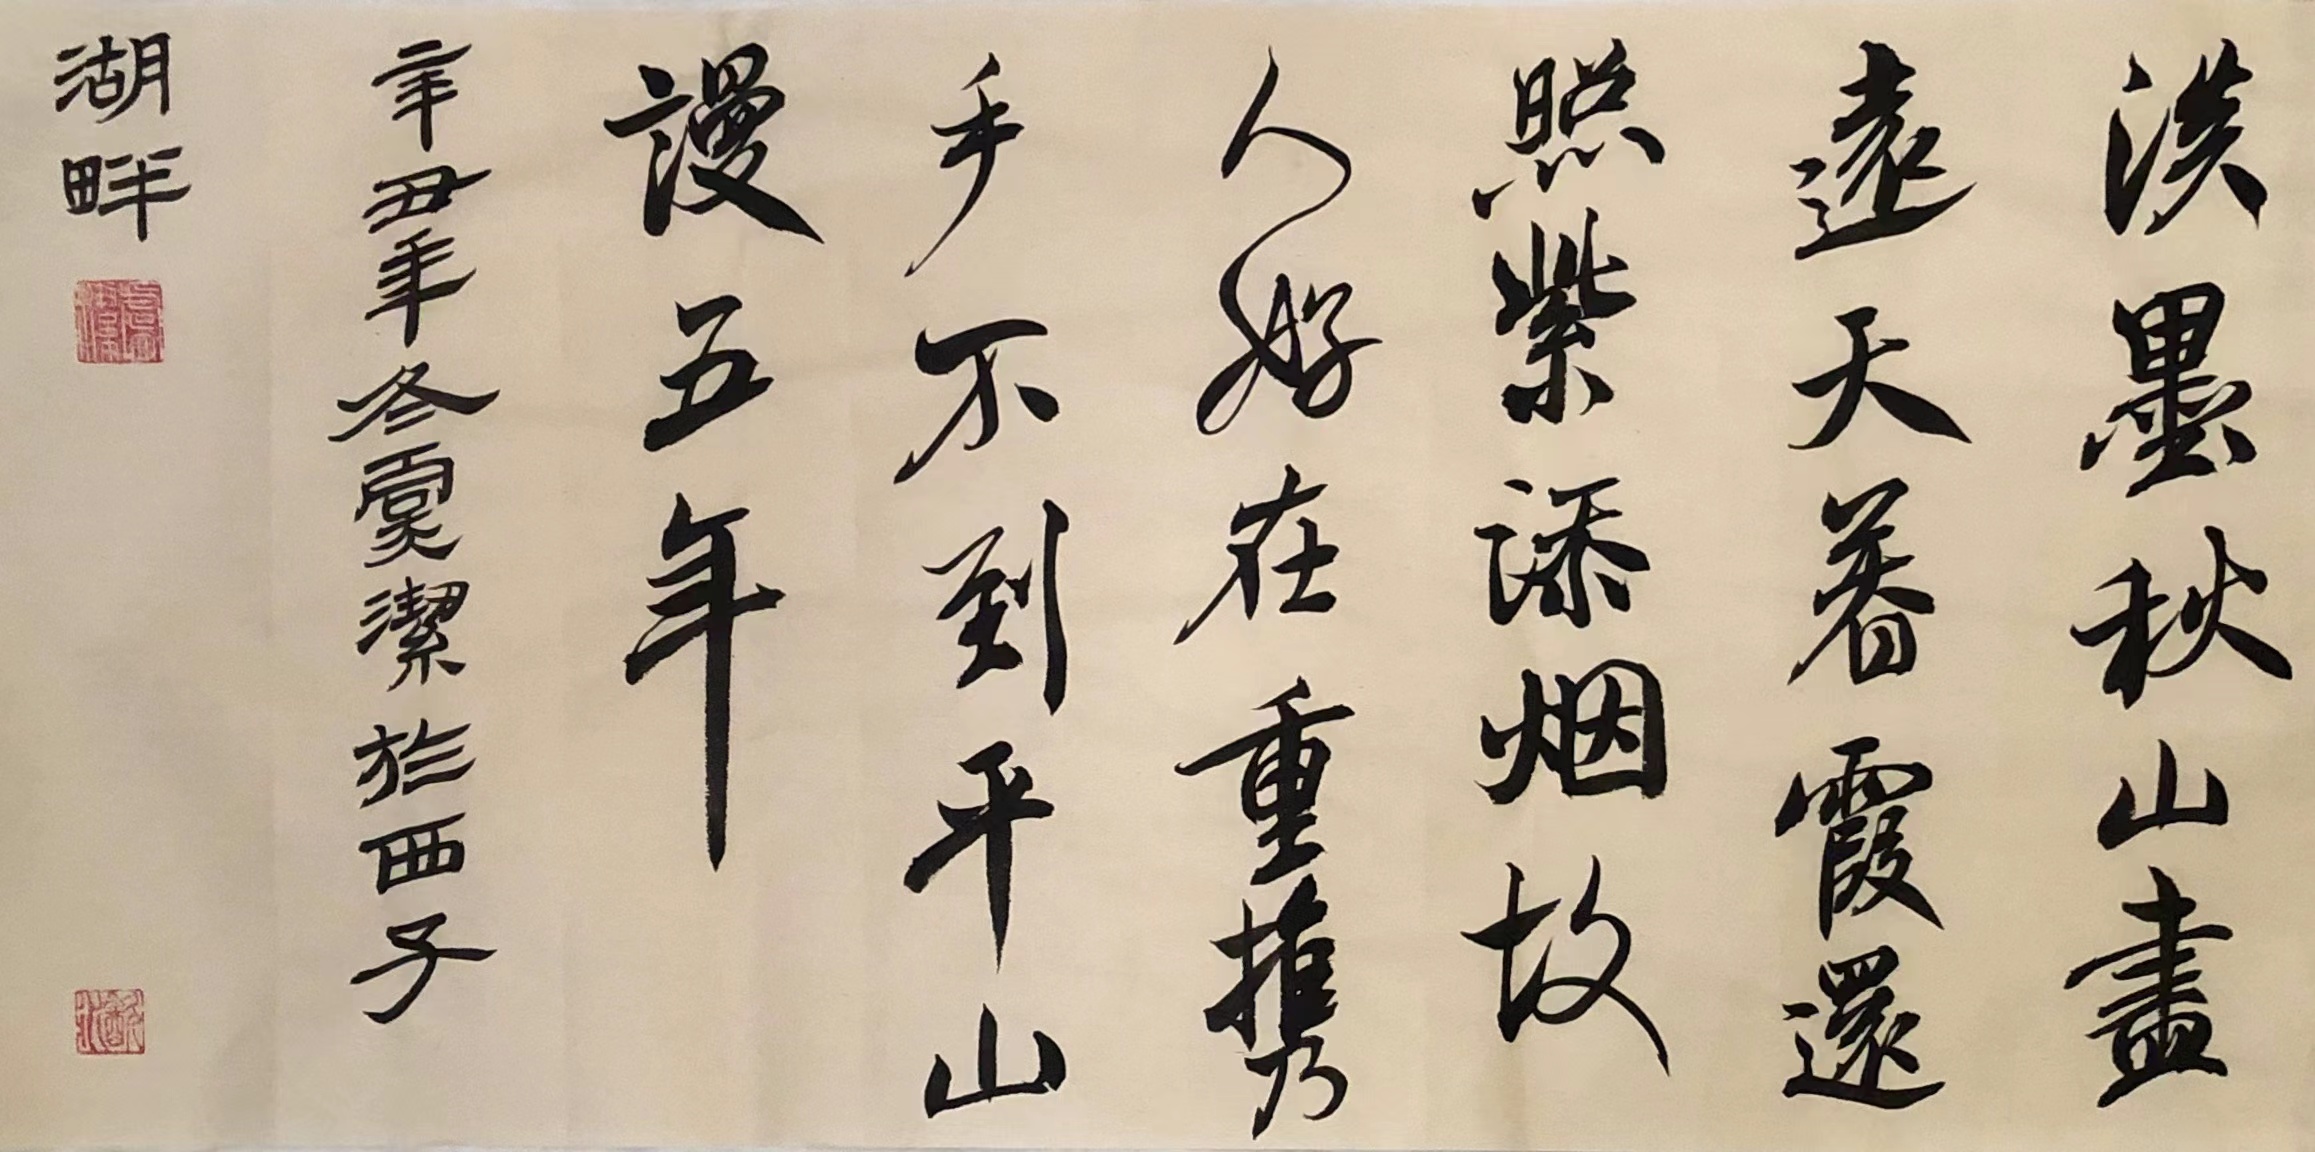 淡墨秋山盡
遠天暮霞還
照紫添烟故
人好在重携
手不到平山
謾五年
辛丑年冬潔於西子
湖畔